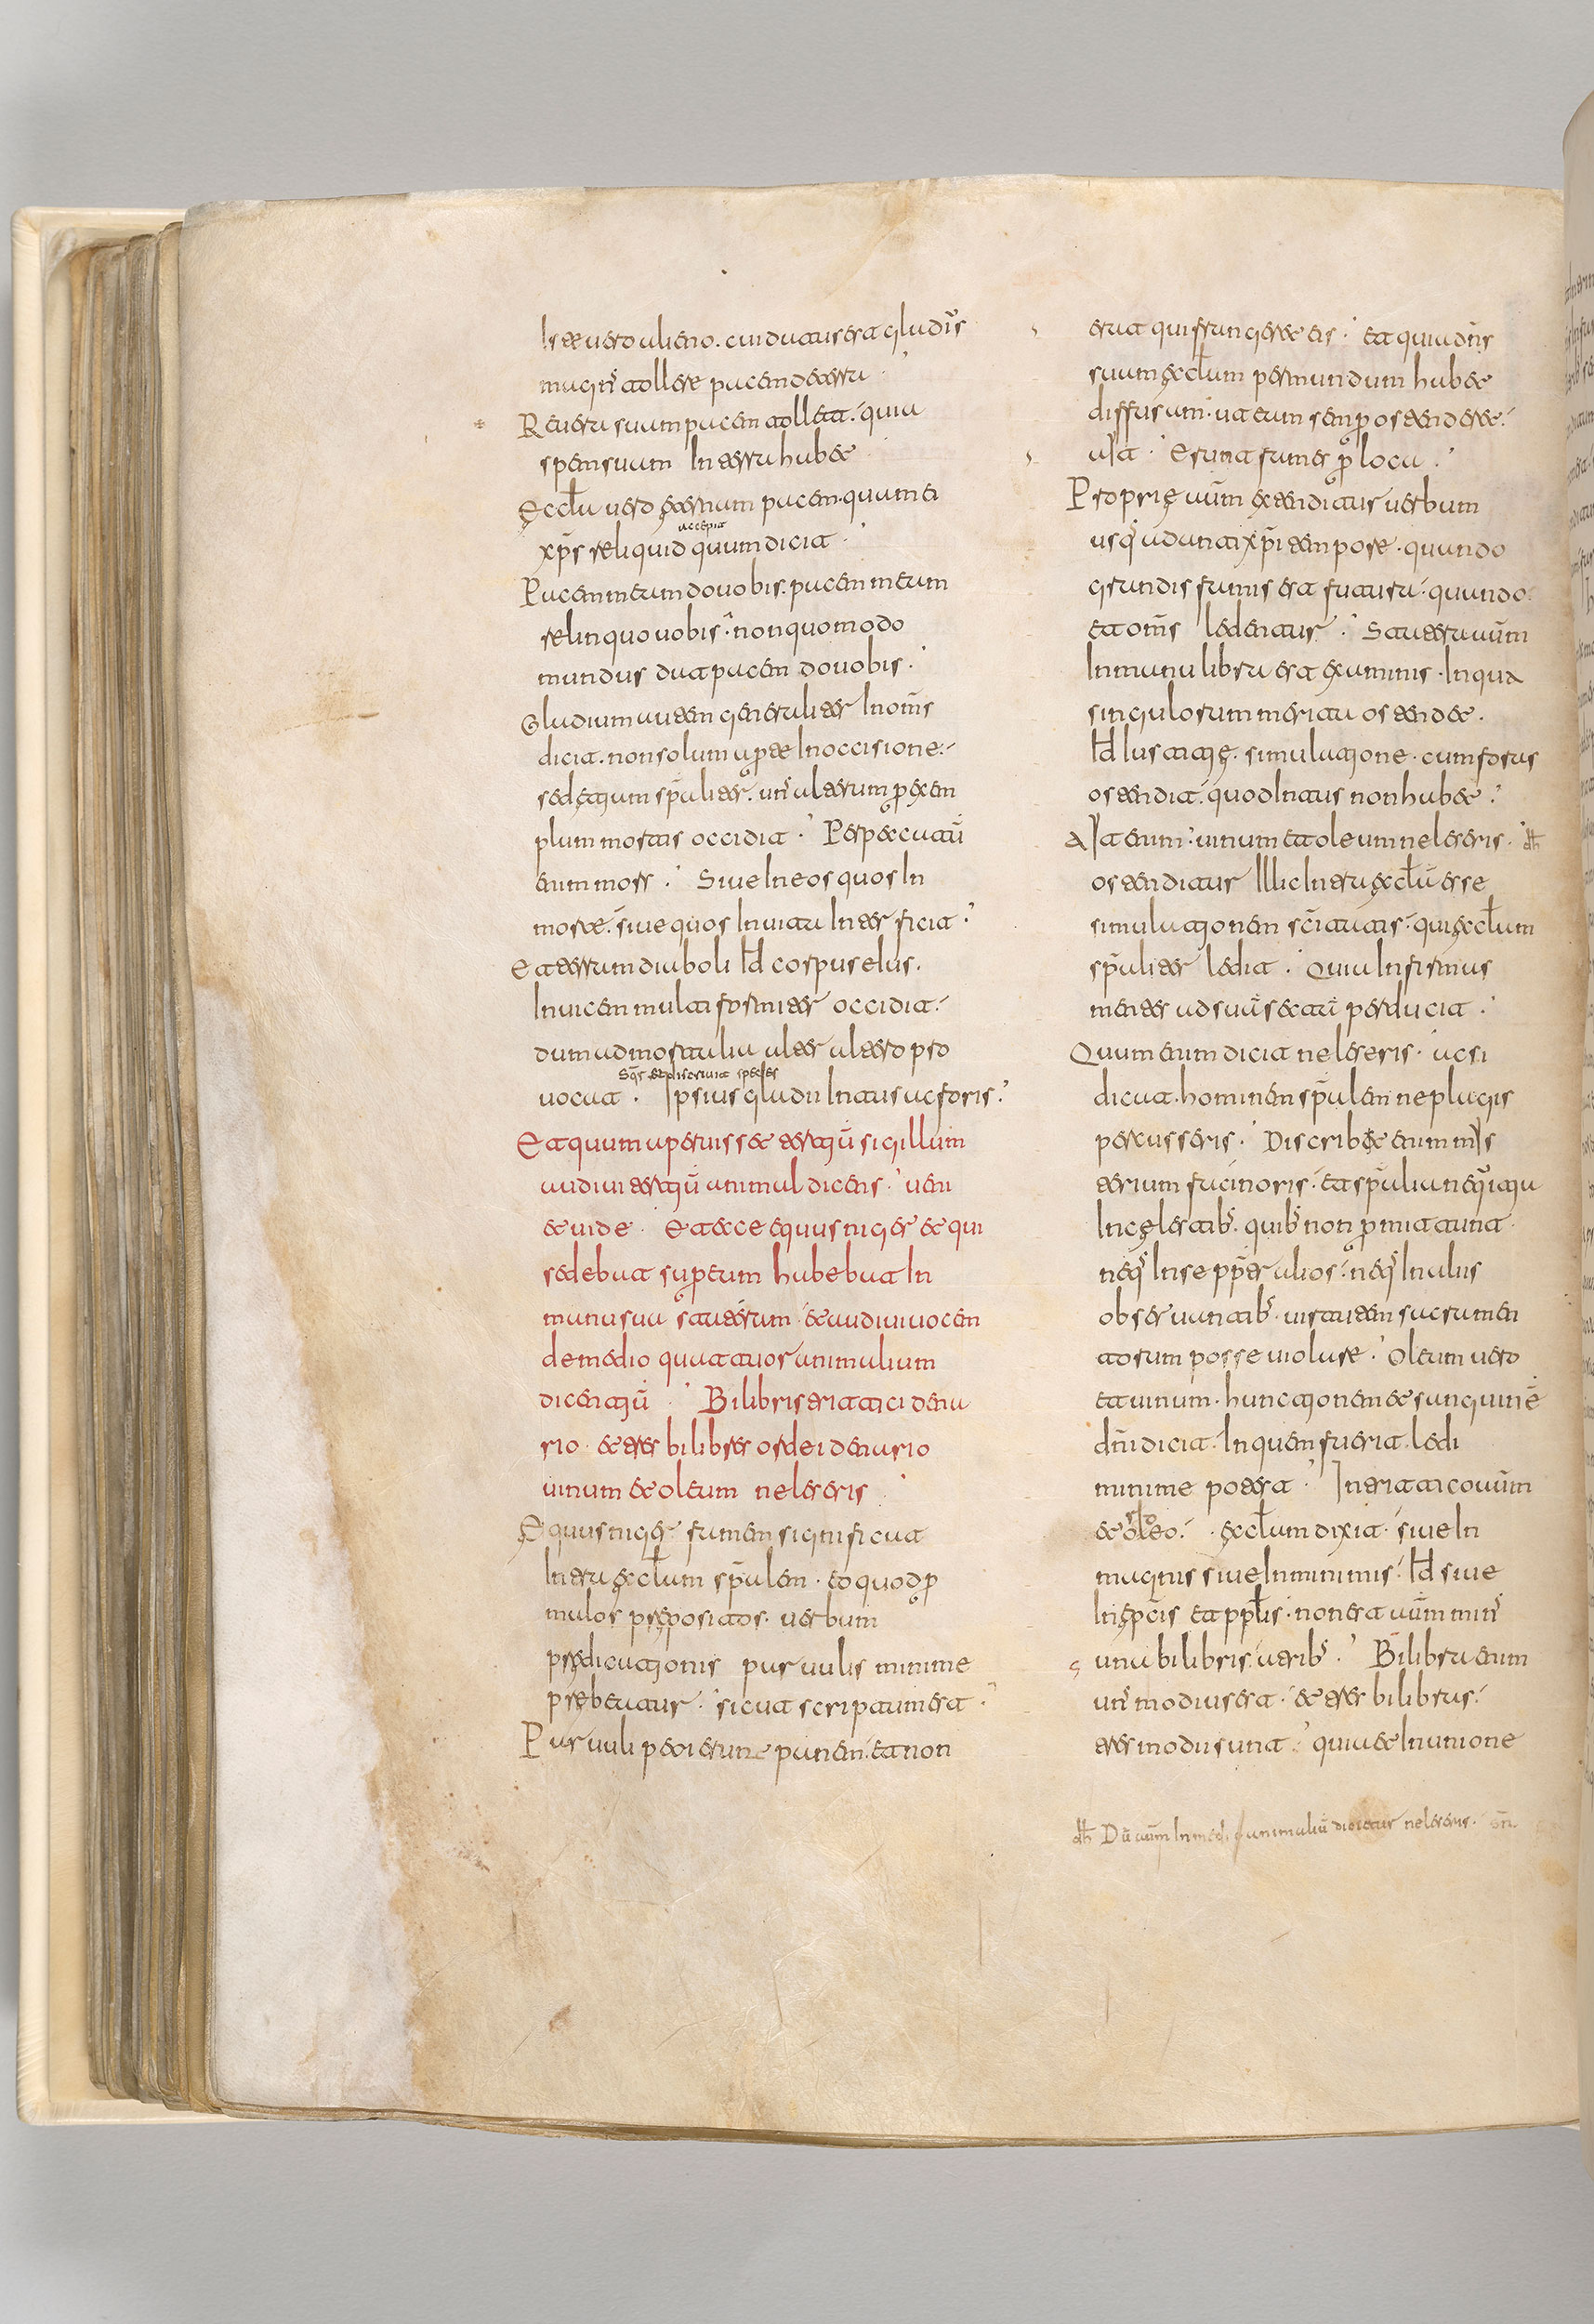 Iste uero alieno. cui datus est gladius
magnus tollere pacem de terra
Re uera suam pacem tollet. quia
spem suam In terra habet
eccl̄a uero eternam pacem. quam ei
accepit
xp̄s reliquid quum dicit
Pacem meam do uobis. pacem meam
relinquo uobis. non quomodo
mundus dat pacem do uobis.
Gladium autem generaliter In om̄s
dicit. non solum aperte In occisione.
sed etiam sp̄aliter. unus alterum per exem
plum mortis occidit. Per peccatū
enim mors. Siue In eos quos In
morte. siue quos In uita Interficit
Et terram diaboli Id corpus eius.
Inuicem multiformiter occidit.
dum ad mortalia alter altero pro
Sequentis et discriuit species
uocat. Ipsius gladii Intus ac foris.
Et quum aperuisset tertiū sigillum
audiui tertiū animal dicens. ueni
et uide. Et ecce equus niger et qui
sedebat super eum habebat In
manu sua stateram. et audiui uocem
de medio quattuor animalium
dicentiū Bilibris tritici dena
rio et tres bilibres ordei denario
uinum et oleum ne leseris
Equus niger famem significat
Intra eccl̄am sp̄alem. eo quod per
malos prepositos. uerbum
predicationis paruulis minime
prebeatur. sicut scriptum est.
Paruuli petierunt panem. et non
erat qui frangeret eis. et quia dn̄s
suam eccl̄am per mundum habet
diffusam. ut eum semper ostenderet.
ait. Erunt fames per loca.
Proprie aūm extenditur uerbum
usq; ad antixp̄i tempore. quando
grandis famis est futura. quando
et om̄s ledentur. Statera aūm
In manu libra est examinis. In qua
singulorum merita ostendet.
Id Iustitie. simulatione. cum foras
ostendit. quod Intus non habet.
ait enim. uinum et oleum ne leseris. dh̄
ostenditur Illic Intra eccl̄ā esse
simulationem sc̄itatis. qui eccl̄am
sp̄aliter ledit. Quia Infirmus
mentes ad suā sectā perducit.
Quum enim dicit ne leseris. ac si
dicat. hominem sp̄alem ne plagis
percusseris. Discribet enim mis
terium facinoris. et sp̄alia nequitia
In celeratib; quib; non permittunt
neq; In se pp̄ter alios. neq; In aliis
obseruantib; uirtutem sacramen
torum posse uiolare. Oleum uero
et uinum. hunctionem et sanguinē
dn̄i dicit. In quem fuerit. ledi
minime poterit. In tritico aūm
et oleo. eccl̄am dixit. siue In
magnis siue In minimis. Id siue
In ep̄cis et ppl̄is. non est aūm minus
una bilibris. a trib; Bilibra enim
unus modius est. et tres bilibras.
tres modii sunt. quia et In unione
dh̄ Dū aūm In medio animaliū dicitur ne leseris.